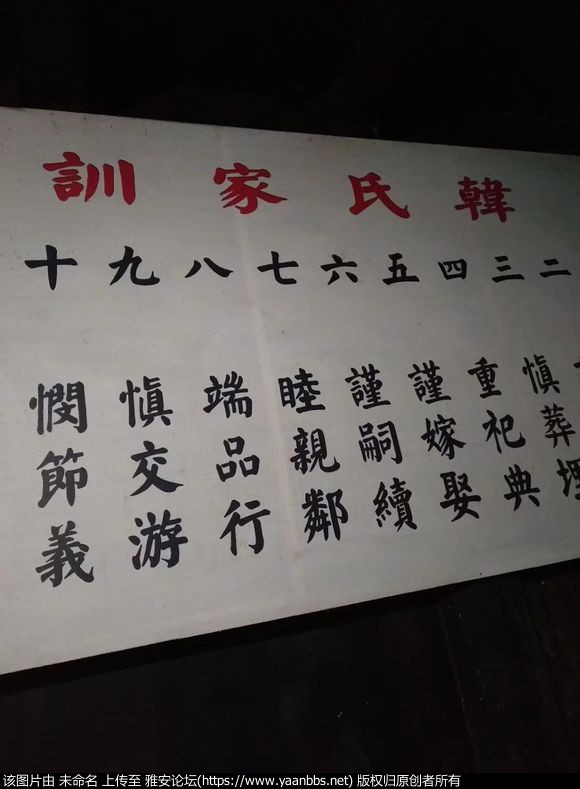 韓氏家訓
二 慎葬埋
三 重祀典
四 謹嫁娶
五 謹嗣續
六 睦親鄰
七 端品行
八 慎交游
九 憫節義
十
该图片由 未命名 上传至 雅安论坛(https://www.yaanbbs.net) 版权归原创者所有